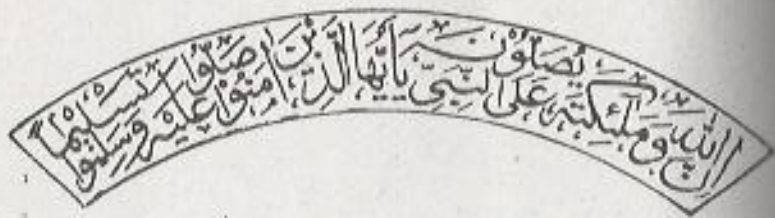 إِنَّ اللّٰهَ وَمَلٰٓئِكَتَهُ يُصَلُّوْنَ عَلَى النَّبِيِّ يٰٓاَيُّهَا الَّذِيْنَ اٰمَنُوْا صَلُّوْا عَلَيْهِ وَسَلِّمُوْا تَسْلِيْمًا